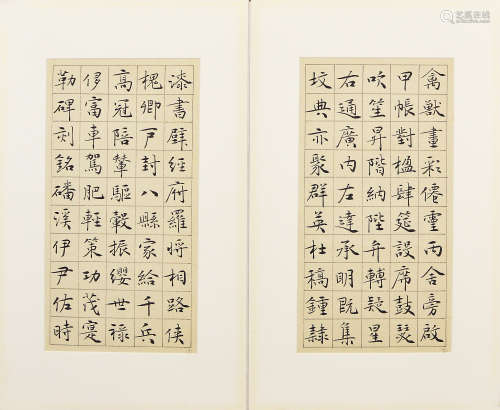 禽獸畫彩僊靈丙舍旁啟
甲帳對楹肆筵設席鼓瑟
吹笙昇階納陛弁轉疑星
右通廣內左達承明既集
坟典亦聚群英杜稿鍾隸
漆書壁經府羅將相路俠
槐卿戶封八縣家給千兵
高冠陪輦驅轂振纓世祿
侈富車駕肥輕策功茂寔
勒碑刻銘磻溪伊尹佐時
艺典在线